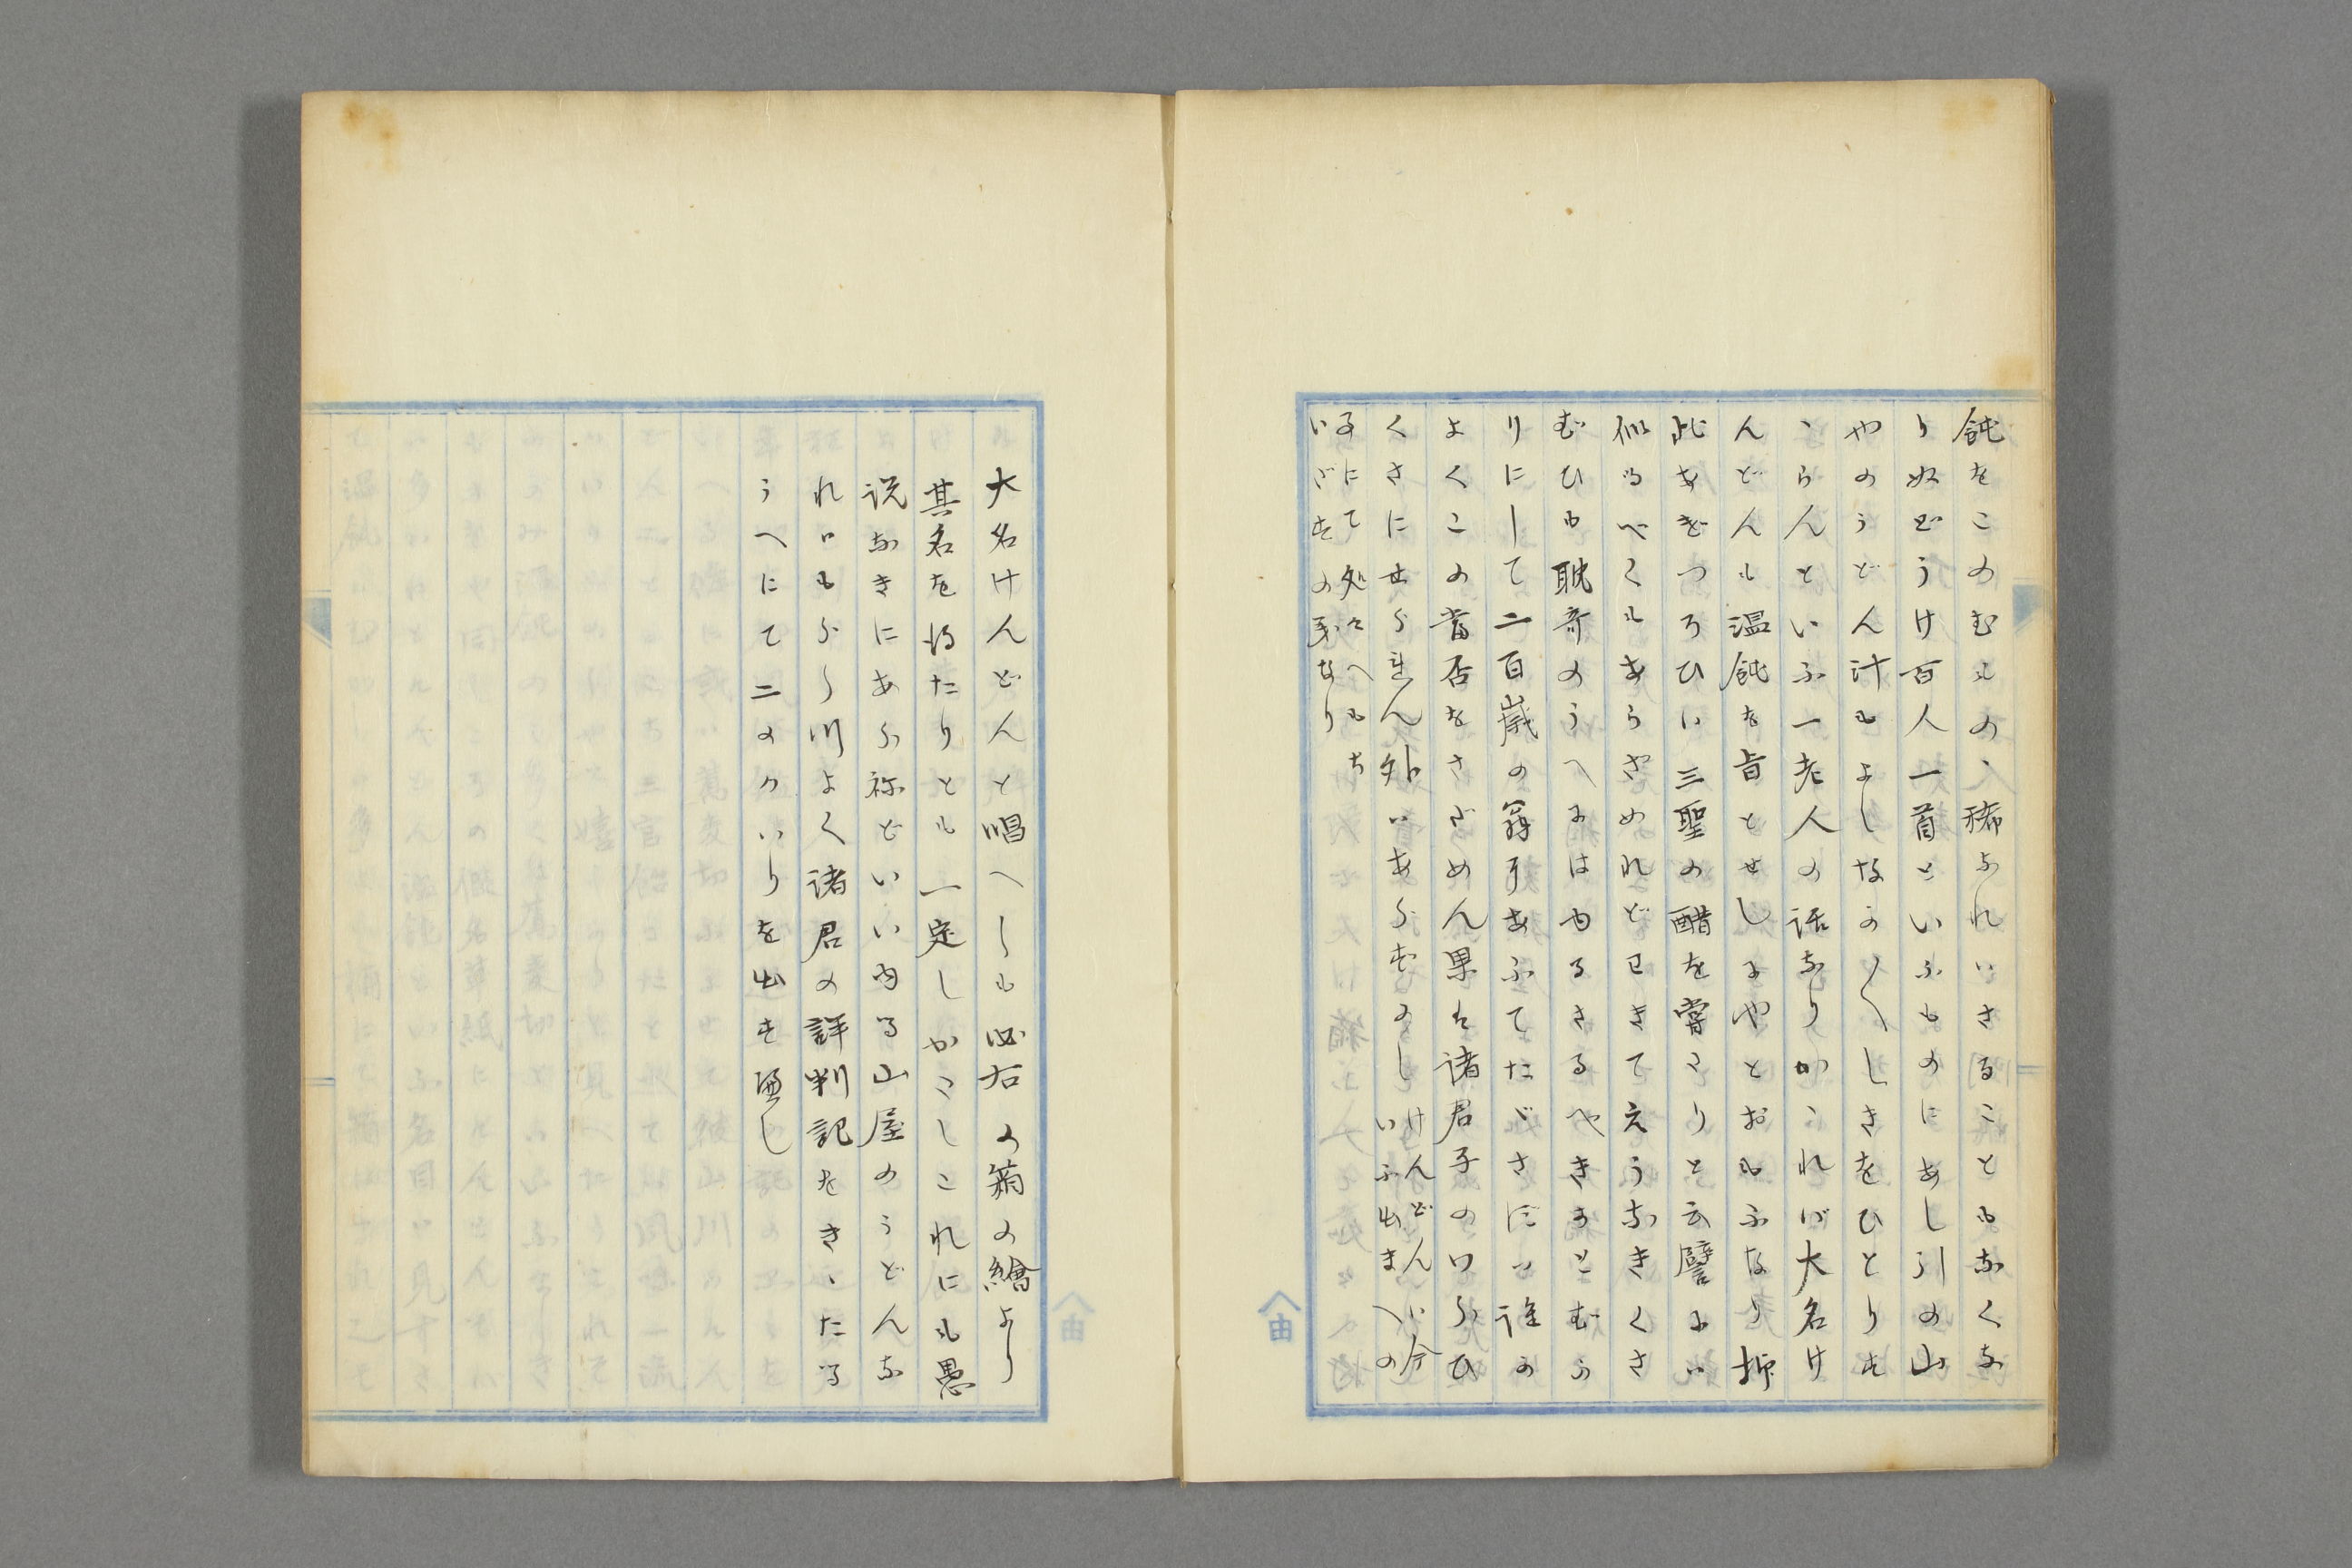 飩をこのむもの、稀なればさることもなくな
りぬどうけ百人一首といふものにあし引の山
やのうどん汁もよしなが〳〵しきをひとりす
ゝらんといふ一老人の話なりかゝれバ大名け
んどんも温飩を旨とせしにやとおもふなり抑
此あげつろひハ三聖の醋を嘗くりと云譬にハ
似るべくもあらざめれどわきてえうなきくさ
むひも耽奇のうへにはゆるさるべきかとむか
りにして二百歳の翁耳あふてたゞさバハ誰か
よくこの當否をさだめん果は諸君子のわらひ
くさにせられん外ハあらむかし けんどんハ今
いふ出まへの
事にて処々へもち
いだすの義なり
大名けんどんと唱へしも必右の箱の繪より
其名を得たりとも一定しがたしこれにも愚
説なきにあらねどいはゆる山屋のうどんな
ればもらし川よく諸君の評判記をきゝたる
うへにて二のかハりを出す可し